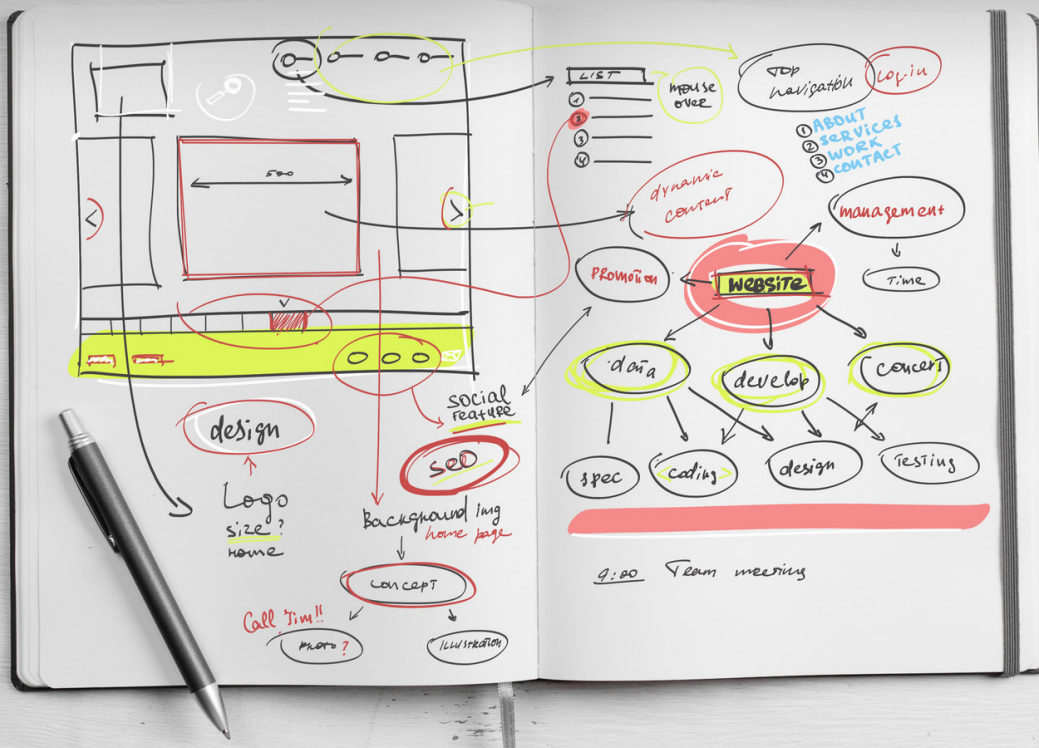 500
design
Logo
size?
Home
social
feature
SEO
Background img
home page
concept
Call Jim!!
PHOTO?
ILLUSTRATION
LIST
1
2
3
4
mouse
over
TOP
navigation
Log-in
1 ABOUT
2 SERVICES
3 WORK
4 CONTACT
dynamic
content
management
Time
PROMOTION
WEBSITE
data
develop
concept
spec
<coding>
design
Testing
9:00 Team meeting